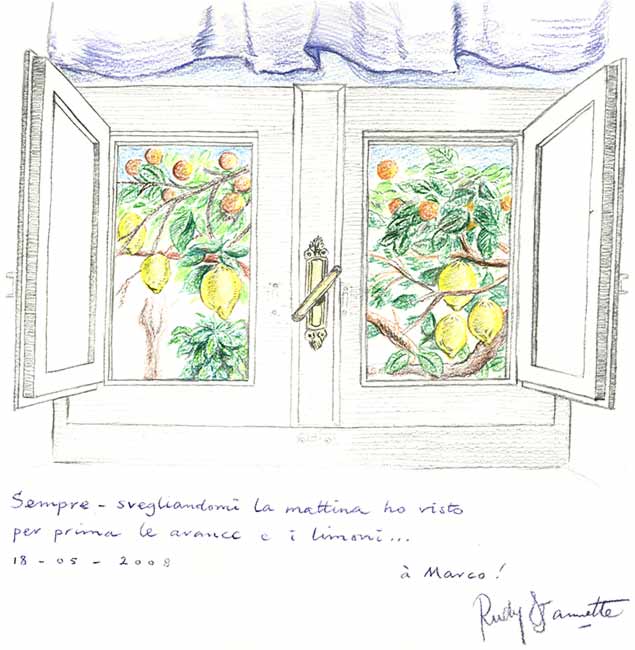 Sempre - svegliandomi la mattina ho visto
per prima le arance e i limoni...
18 - 05 - 2008
à Marco!
Rudy & Jannette